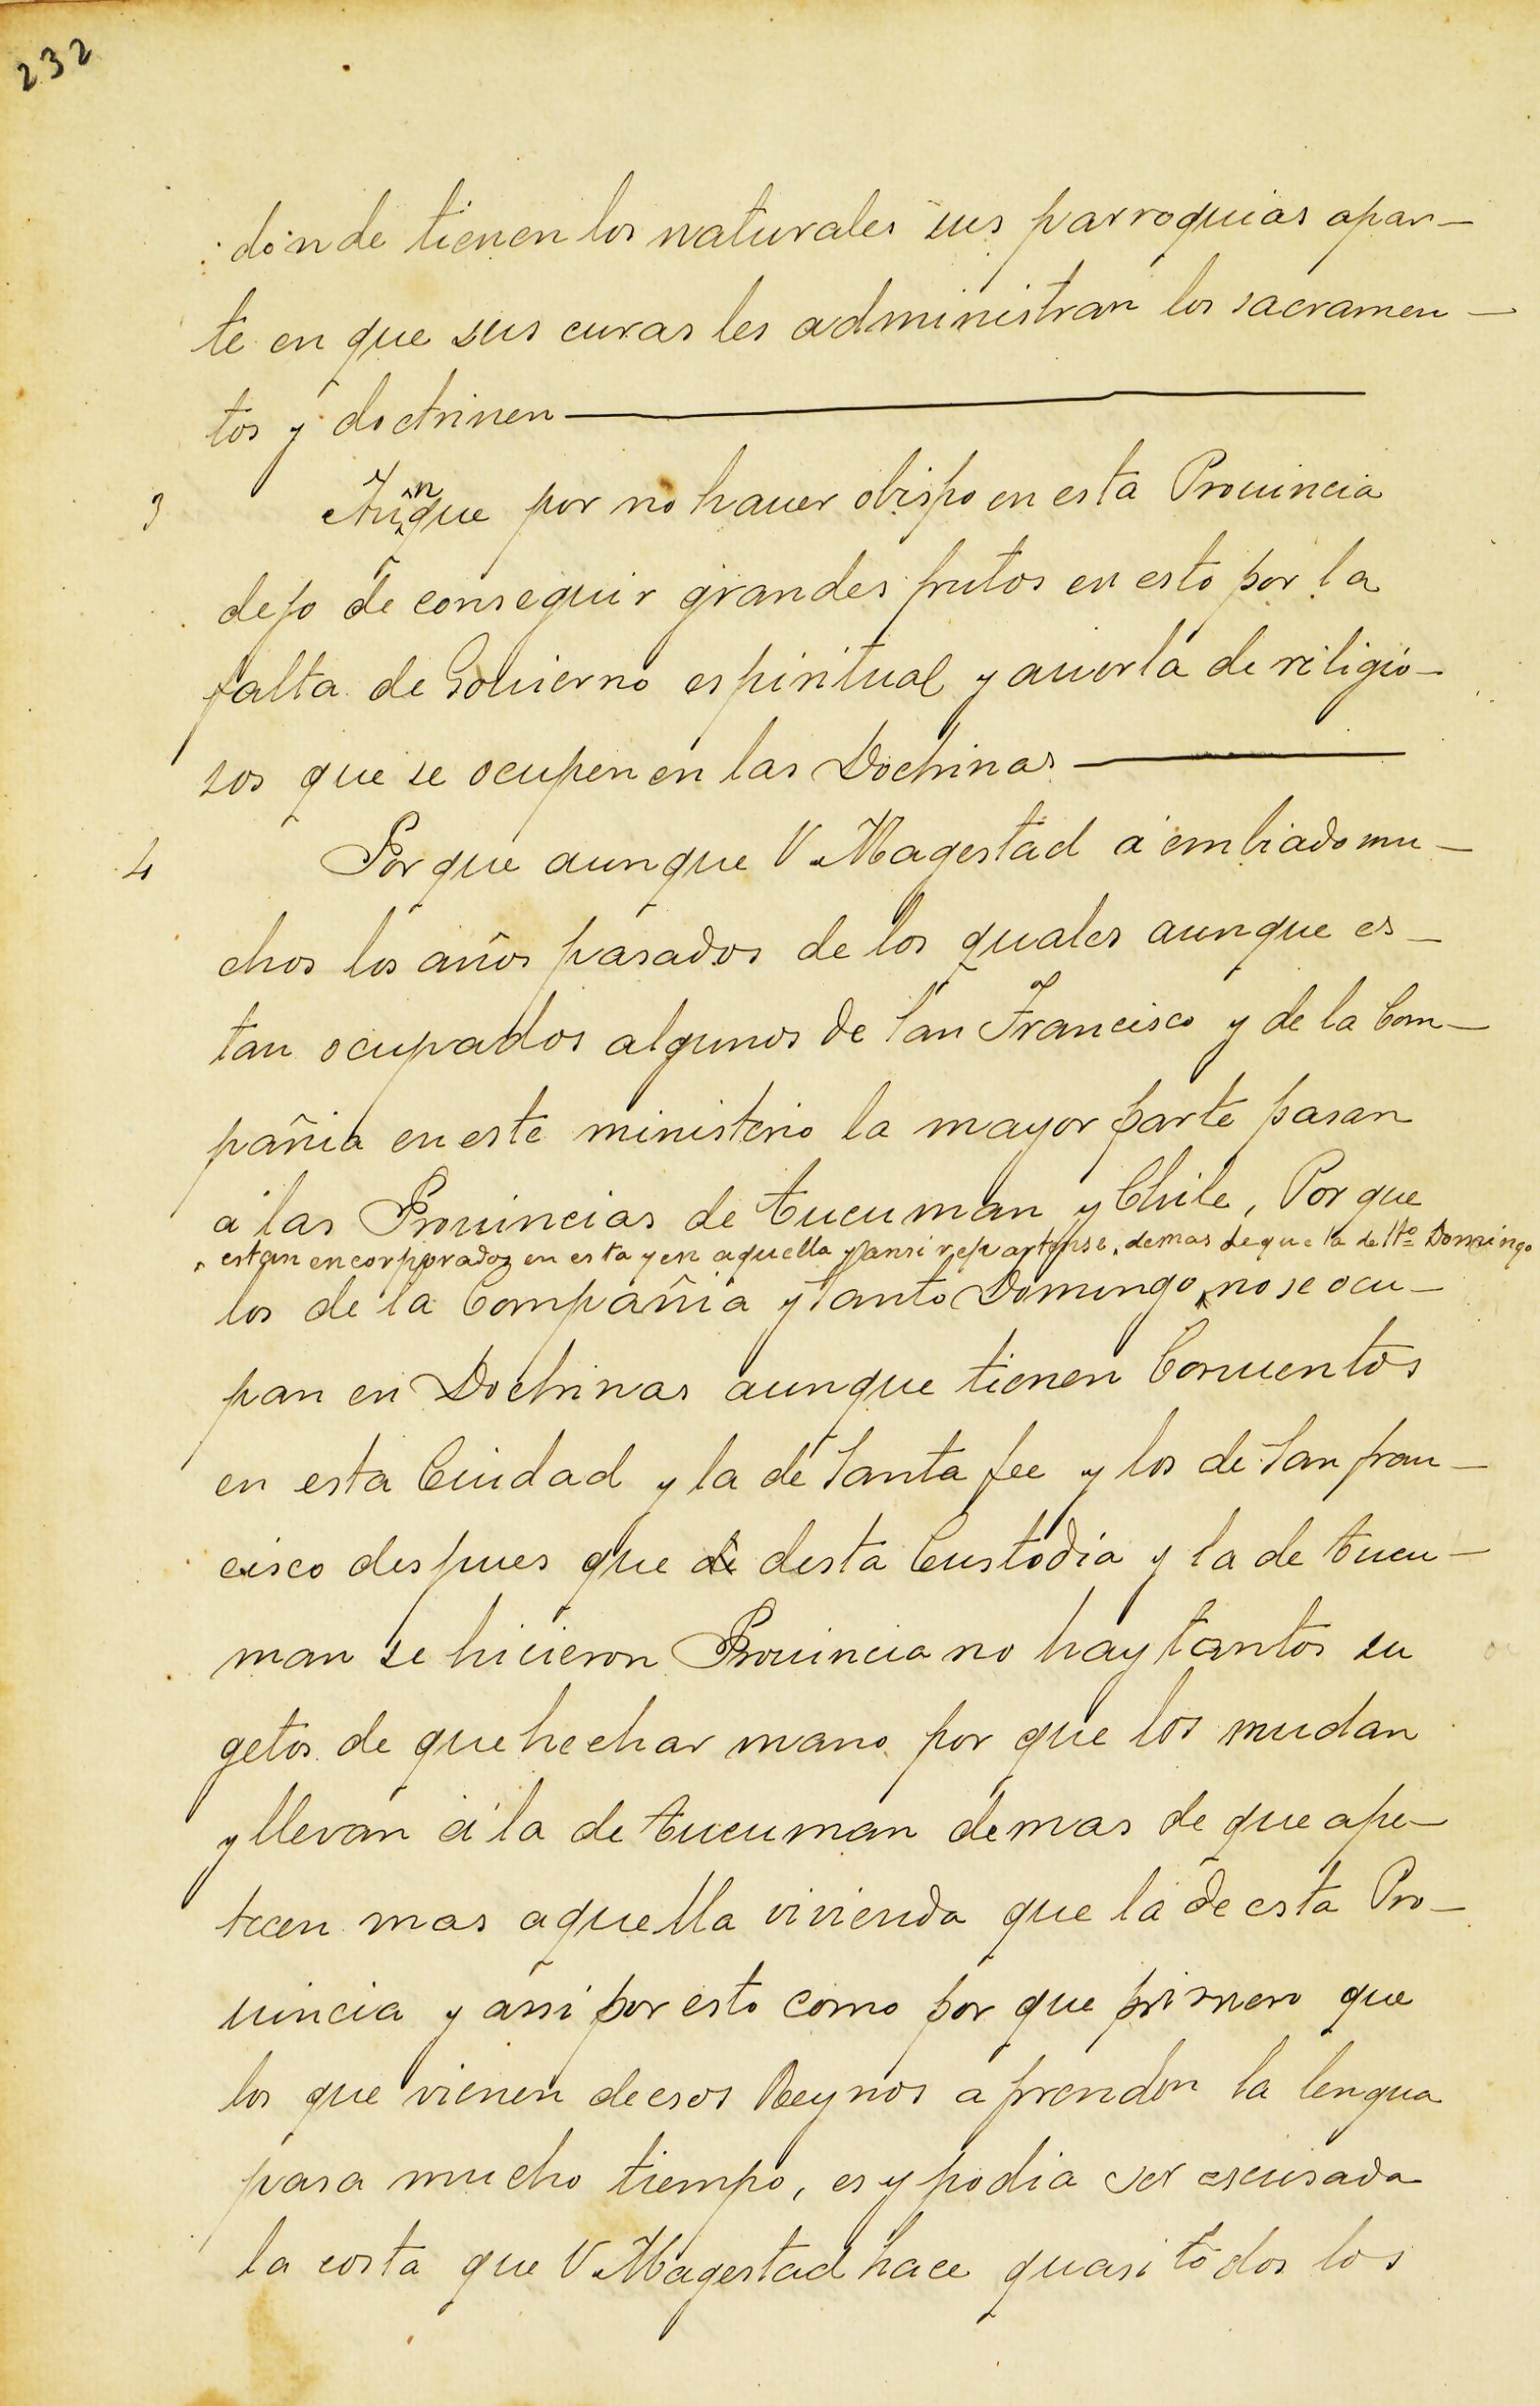 232
donde tienen los naturales sus parroquias apar-
te en que sus curas les administran los sacramen-
tos y doctrinen
3 Aunque por no hauer obispo en esta Prouincia
dejo de conseguir grandes frutos en esto por la
falta de Gouierno espiritual y auerla de religio-
sos que se ocupen en las Doctrinas
4 Por que aunque V Magestad a embiado mu-
chos los años pasados de los quales aunque es-
tan ocupados algunos de San Francisco y de la Com-
pañia en este ministerio la mayor parte pasan
a las Prouincias de Tucuman y Chile, Por que
estan encorporados en esta y en aquella y ansi repartense, demas de que la de Sto Domingo
los de la Compañia y Santo Domingo no se ocu-
pan en Doctrinas aunque tienen Conuentos
en esta Ciudad y la de Santa fee y los de San fran-
cisco despues que de desta Custodia y la de Tucu-
man se hicieron Prouincia no hay tantos su
getos de que hechar mano por que los mudan
y llevan a la de Tucuman demas de que ape-
tecen mas aquella vivienda que la de esta Pro-
uincia y assi por esto como por que primero que
los que vienen de esos Reynos aprenden la lengua
pasa mucho tiempo, es y podia ser escusada
la costa que V Magestad hace quasi todos los